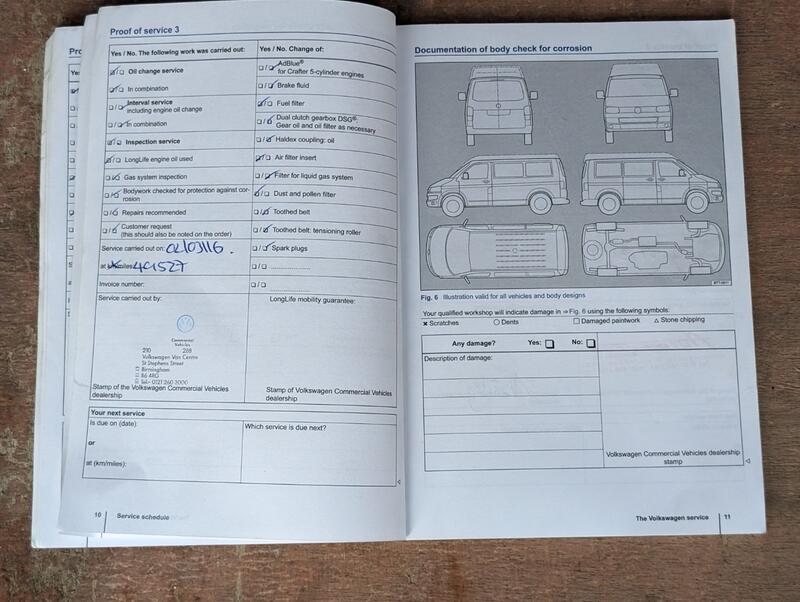 Proof of service 3
Yes / No. The following work was carried out:
Oil change service
In combination
Interval service
including engine oil change
In combination
Inspection service
LongLife engine oil used
Gas system inspection
Bodywork checked for protection against cor-
rosion
Repairs recommended
Customer request
(this should also be noted on the order)
Service carried out on: 02/03/16.
at km/miles: 49527
Invoice number:
Service carried out by:
Commercial
Vehicles
210 268
Volkswagen Van Centre
St Stephens Street
Birmingham
B6 4RG
Tel:- 0121 260 3000
Stamp of the Volkswagen Commercial Vehicles
dealership
Yes / No. Change of:
AdBlue®
for Crafter 5-cylinder engines
Brake fluid
Fuel filter
Dual clutch gearbox DSG®:
Gear oil and oil filter as necessary
Haldex coupling: oil
Air filter insert
Filter for liquid gas system
Dust and pollen filter
Toothed belt
Toothed belt: tensioning roller
Spark plugs
....................
LongLife mobility guarantee:
Stamp of Volkswagen Commercial Vehicles
dealership
Your next service
Is due on (date):
or
at (km/miles):
Which service is due next?
10 Service schedule
Documentation of body check for corrosion
Fig. 6 Illustration valid for all vehicles and body designs
Your qualified workshop will indicate damage in ⇒ Fig. 6 using the following symbols:
✖ Scratches ○ Dents □ Damaged paintwork △ Stone chipping
Any damage? Yes: □ No: □
Description of damage:
Volkswagen Commercial Vehicles dealership
stamp
The Volkswagen service 11